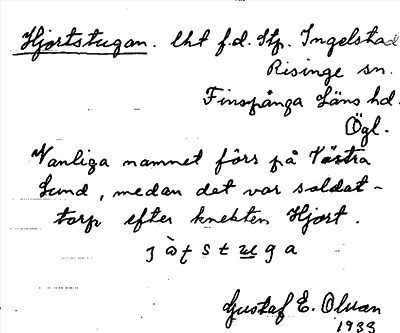 Hjortstugan. lht f.d. Stp. Ingelstad
Risinge sn.
Finspånga Läns hd.
Ögl.
Vanliga namnet förr på Västra
Lund, medan det var soldat-
torp efter knekten Hjort.
Gustaf E. Olvan
1933